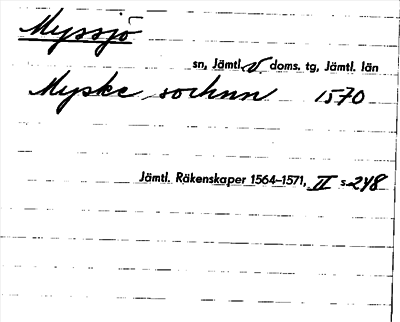 Myssjö
sn, Jämtl. V. doms. tg, Jämtl. län
Myske sochnn 1570
Jämtl. Räkenskaper 1564–1571, II s. 248